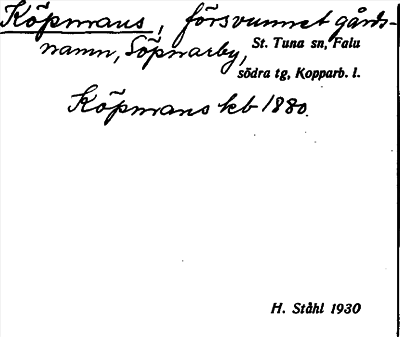 Köpmans, försvunnet gårds-
namn, Söpnarby,
St. Tuna sn, Falu
södra tg, Kopparb. l.
Köpmans kb 1880.
H. Ståhl 1930